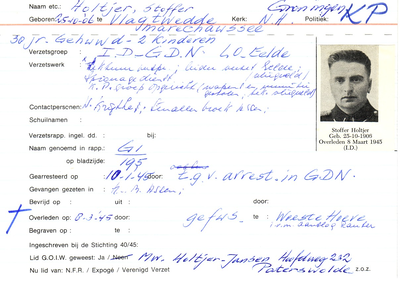 Naam etc.: Holtjer, Stoffer Groningen
Geboren: 25-10-06 te Vlagtwedde Kerk: N.H. Politiek: KP
Marechaussee
30 jr. Gehuwd - 2 kinderen
Verzetsgroep: I.D-G.D.N. LO, Eelde
Verzetswerk
Contactpersonen:
Schuilnaam :
Verzetsrapp. ingel. dd. : bij:
Naam genoemd in rapp.: G1
op bladzijde: 195
Gearresteerd op: 10-1-45 door: t.g.v. arrest. in GDN.
Gevangen gezeten in : H.v.B. Assen;
Bevrijd op : uit : door:
Overleden op : 8-3-45 door: gefus. te : Woeste Hoeve
i.v.m. aanslag Rauter
Begraven op : te :
Ingeschreven bij de Stichting 40/45:
Lid G.O.I.W. geweest: Ja / Neen Mw. Holtjer-Jansen Hoofdweg 232
Nu lid van: N.F.R. / Expogé / Verenigd Verzet Paterswolde z.o.z.
Stoffer Holtjer
Geb. 25-10-1906
Overleden 8 Maart 1945
(I.D.)